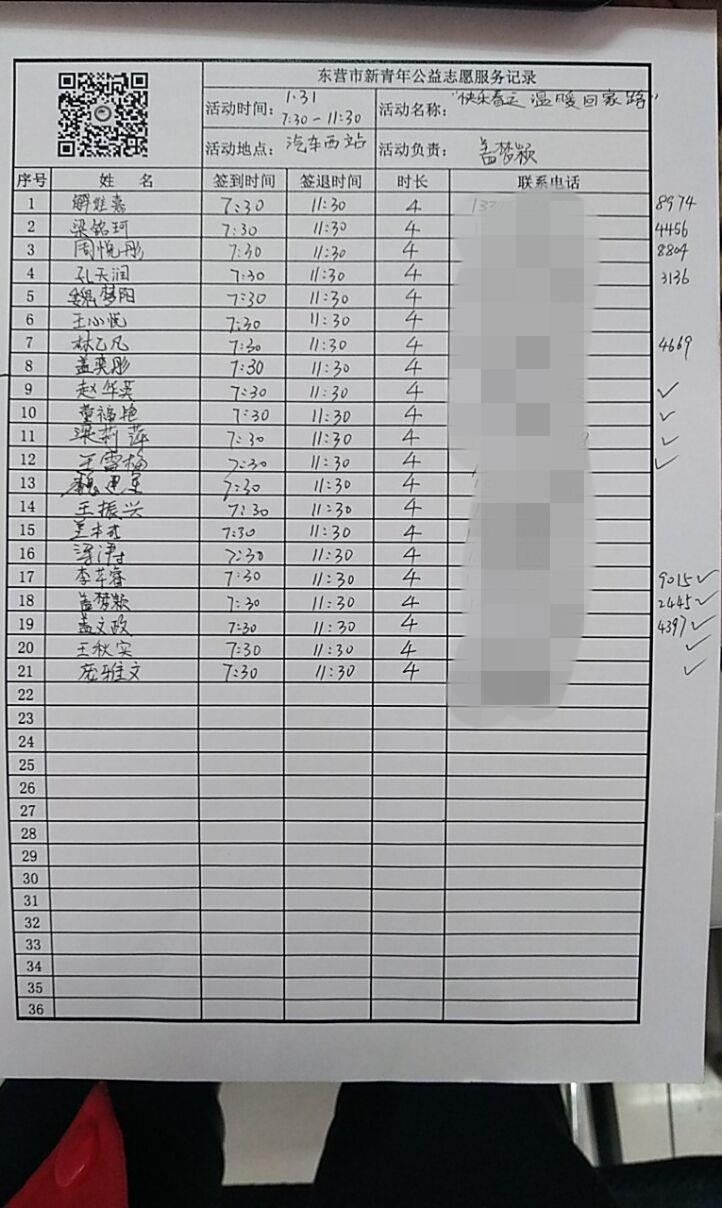 东营市新青年公益志愿服务记录
活动时间: 1.31 7:30-11:30 活动名称: "快乐春运 温暖回家路"
活动地点: 汽车西站 活动负责: 盖梦颖
序号 姓 名 签到时间 签退时间 时长 联系电话
1 解雅嘉 7:30 11:30 4 8974
2 梁铭珂 7:30 11:30 4 4456
3 周悦彤 7:30 11:30 4 8804
4 孔天润 7:30 11:30 4 3136
5 魏梦阳 7:30 11:30 4
6 王心悦 7:30 11:30 4
7 林乙凡 7:30 11:30 4 4669
8 盖奕彤 7:30 11:30 4
9 赵华英 7:30 11:30 4 ✓
10 董福艳 7:30 11:30 4 ✓
11 梁莉萍 7:30 11:30 4 ✓
12 王雪梅 7:30 11:30 4 ✓
13 7:30 11:30 4
14 王振兴 7:30 11:30 4
15 7:30 11:30 4
16 7:30 11:30 4
17 李芊睿 7:30 11:30 4 9015 ✓
18 盖梦颖 7:30 11:30 4 2445 ✓
19 盖文政 7:30 11:30 4 4397 ✓
20 王秋实 7:30 11:30 4 ✓
21 庞雅文 7:30 11:30 4 ✓
22
23
24
25
26
27
28
29
30
31
32
33
34
35
36